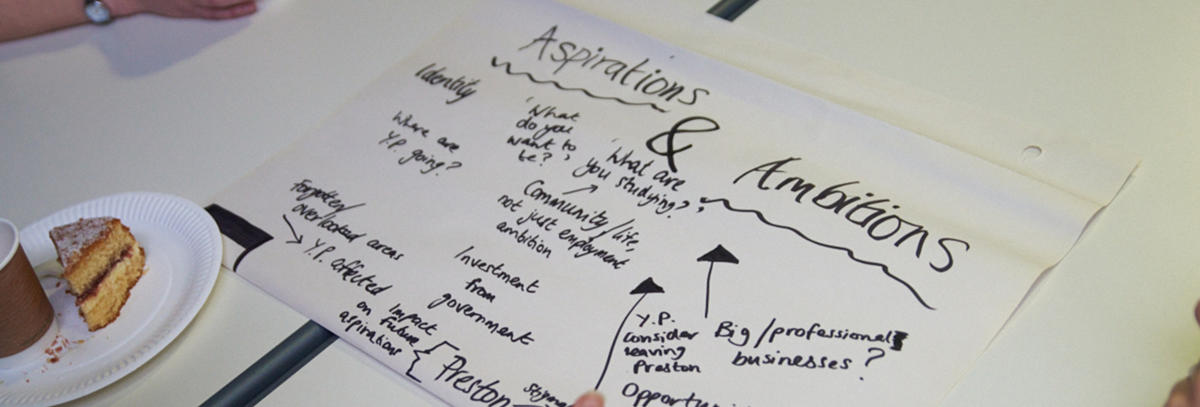 Aspirations
&
Ambitions
Identity
Where are
Y.P. going?
'What
do you
want to
be?'
'What are
you studying?'
Community/life,
not just employment
ambition
Forgotten/
overlooked areas
Y.P. affected
Investment
from
government
Impact
on future
aspirations
{ Preston
Y.P.
consider
leaving
Preston
Big/professional
businesses?